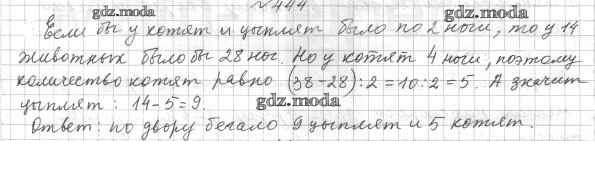 № 444
gdz.moda
Если бы у котят и цыплят было по 2 ноги, то у 14
животных было бы 28 ног. Но у котят 4 ноги, поэтому
gdz.moda
количество котят равно (38-28):2=10:2=5. А значит
цыплят: 14-5=9.
gdz.moda
Ответ: по двору бегало 9 цыплят и 5 котят.